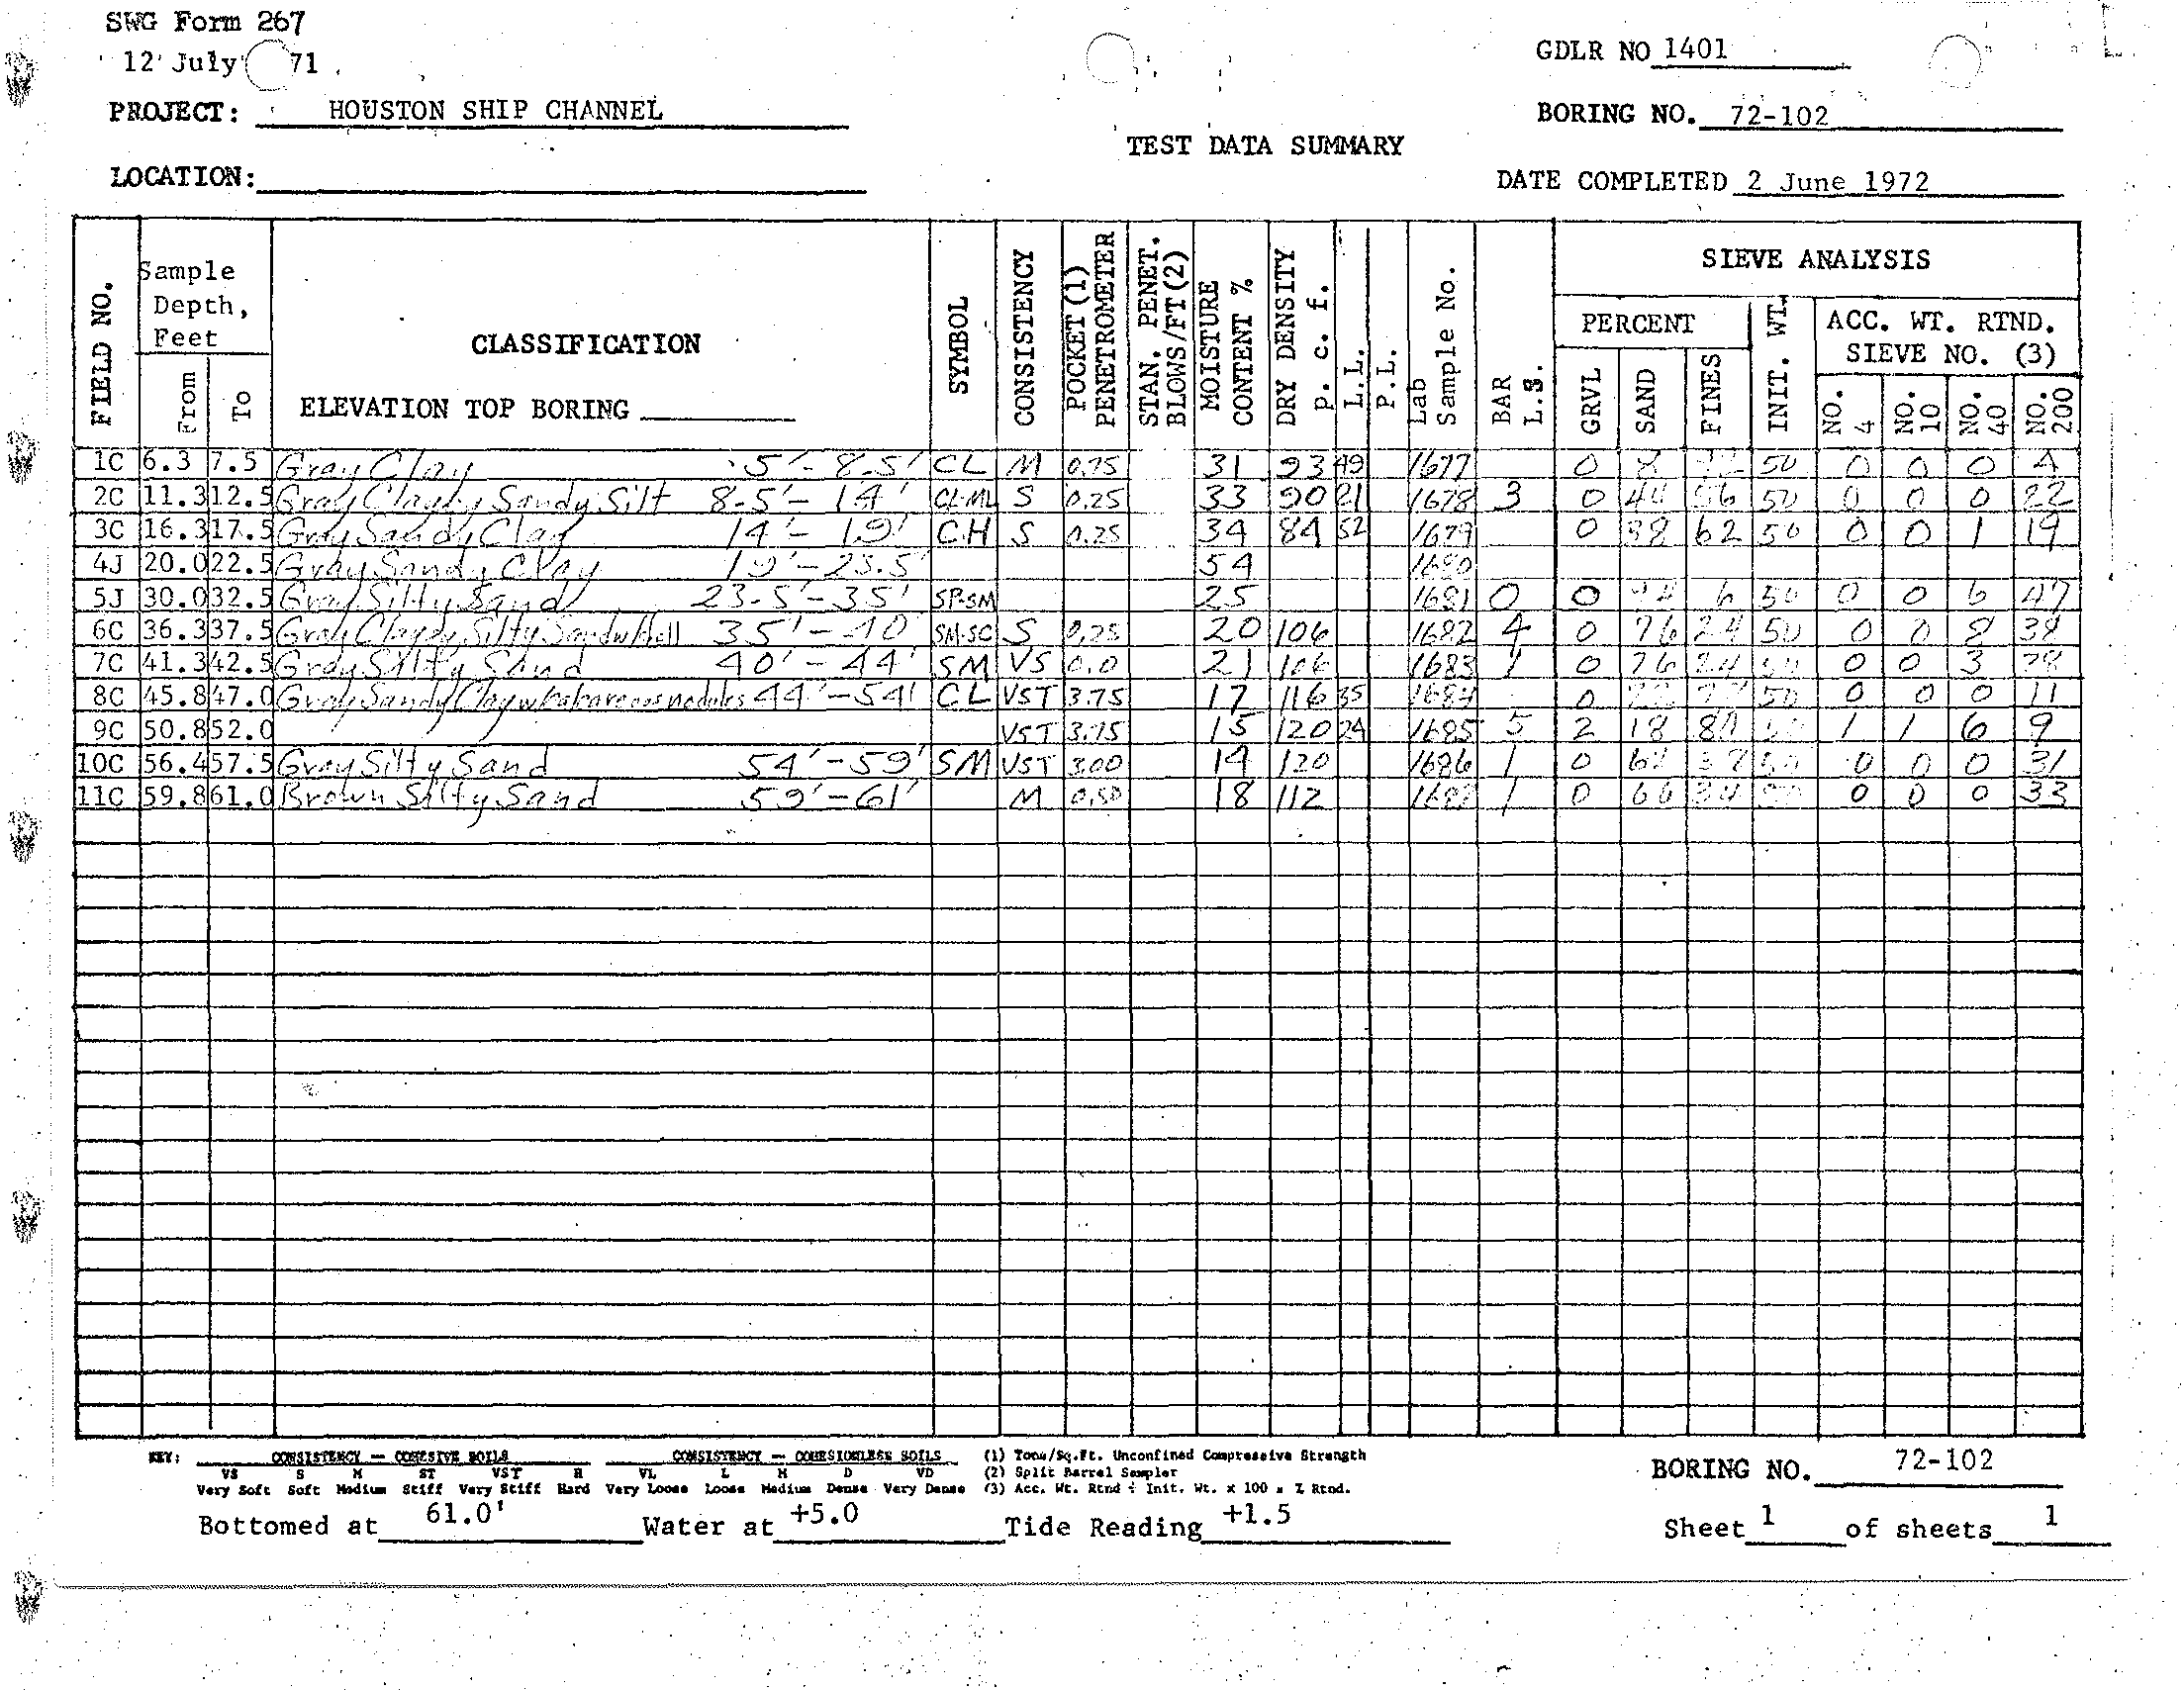 SWG Form 267
12 July 71
GDLR NO 1401
PROJECT: HOUSTON SHIP CHANNEL
BORING NO. 72-102
TEST DATA SUMMARY
LOCATION:
DATE COMPLETED 2 June 1972
FIELD NO.
Sample Depth, Feet
From
To
CLASSIFICATION
ELEVATION TOP BORING
SYMBOL
CONSISTENCY
POCKET (1) PENETROMETER
STAN. PENET. BLOWS/FT (2)
MOISTURE CONTENT %
DRY DENSITY p. c. f.
L.L.
P.L.
Lab Sample No.
BAR L.S.
SIEVE ANALYSIS
PERCENT
GRVL
SAND
FINES
INIT. WT.
ACC. WT. RTND. SIEVE NO. (3)
NO. 4
NO. 10
NO. 40
NO. 200
1C 6.3 7.5 Gray Clay 5'- 8.5' CL M 0.75 31 93 49 1677 0 8 50 0 0 0 4
2C 11.3 12.5 Gray Clayey Sandy Silt 8.5'- 14' CL-ML S 0.25 33 90 21 1678 3 0 44 56 50 0 0 0 22
3C 16.3 17.5 Gray Sandy Clay 14'- 19' CH S 0.25 34 84 52 1679 0 38 62 50 0 0 1 19
4J 20.0 22.5 Gray Sandy Clay 19'-23.5' 54 1680
5J 30.0 32.5 Gray Silty Sand 23.5'-35' SP-SM 25 1681 0 0 94 6 50 0 0 6 47
6C 36.3 37.5 Gray Clayey Silty Sand w/shell 35'- 40' SM-SC S 0.25 20 106 1682 4 0 76 24 50 0 0 8 38
7C 41.3 42.5 Gray Silty Sand 40'- 44' SM VS 0.0 21 106 1683 1 0 76 24 50 0 0 3 38
8C 45.8 47.0 Gray Sandy Clay w/calcareous nodules 44'-54' CL VST 3.75 17 116 35 1684 0 50 0 0 0 11
9C 50.8 52.0 VST 3.75 15 120 24 1685 5 2 18 80 50 1 1 6 9
10C 56.4 57.5 Gray Silty Sand 54'-59' SM VST 3.00 14 120 1686 1 0 62 38 50 0 0 0 31
11C 59.8 61.0 Brown Silty Sand 59'-61' M 0.50 18 112 1687 1 0 66 34 50 0 0 0 33
KEY: CONSISTENCY — COHESIVE SOILS CONSISTENCY — COHESIONLESS SOILS (1) Tons/Sq.Ft. Unconfined Compressive Strength
VS S M ST VST H VL L M D VD (2) Split Barrel Sampler
Very Soft Soft Medium Stiff Very Stiff Hard Very Loose Loose Medium Dense Very Dense (3) Acc. Wt. Rtnd ÷ Init. Wt. x 100 = % Rtnd.
BORING NO. 72-102
Bottomed at 61.0' Water at +5.0 Tide Reading +1.5 Sheet 1 of sheets 1